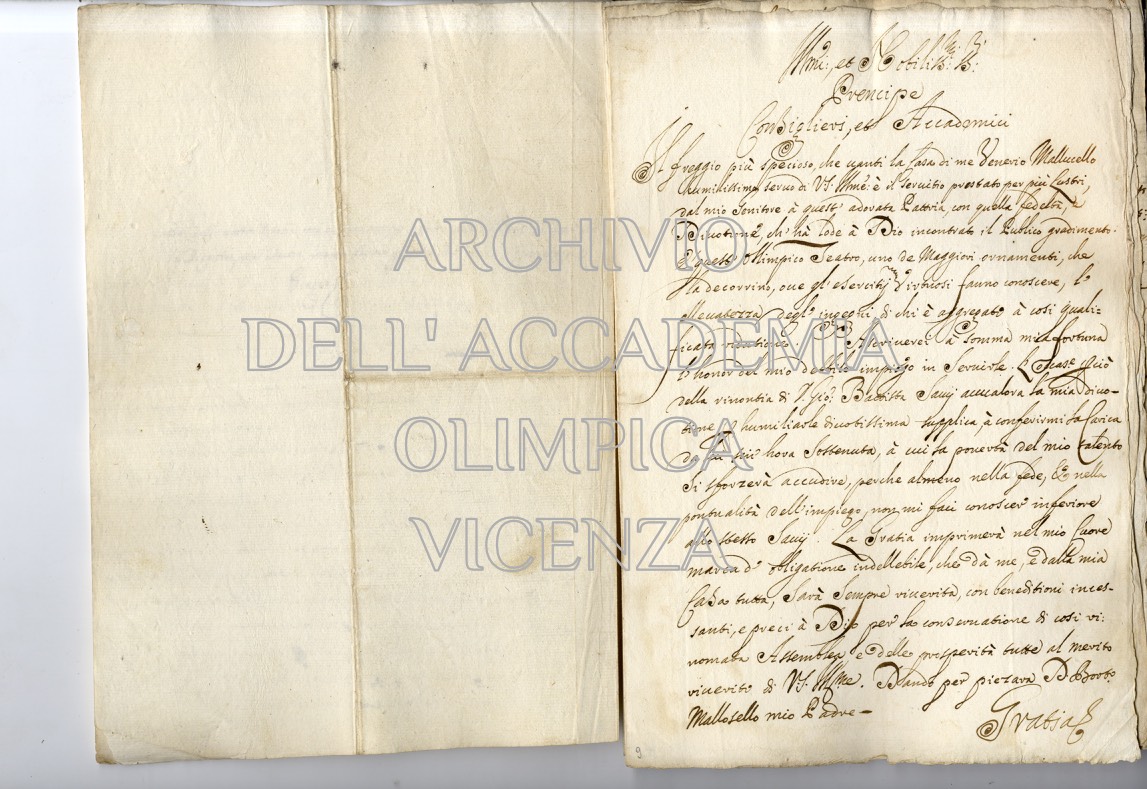 Ill.mi, et Nobiliss.mi SS.ri
Prencipe
Consiglieri, et Accademici
Il freggio più specioso, che vanti la Casa di me Venerio Mallosello
humilissimo servo di VS. Ill.me è il servitio prestato per più lustri,
dal mio Genitore à quest' adorata Pattria, con quella fedeltà, e
Divotione, ch' hà lode à Dio incontrato il Publico gradimento.
È quest' Ollimpico Teatro, uno de Maggiori ornamenti, che
la decorrino, ove gl' esercitij Virtuosi fanno conoscere, l'
degl' ingegni, di chi è aggregato à così quali-
ficata Ascriverei à somma mia fortuna
l' honor del mio debile impiego in servirle. L' occas.e
della rinontia di Gio: Battista Savij avvalora la mia divo-
tione humiliarle divotissima supplica, à conferirmi la Carica
da fin' hora sostenuta, à cui la povertà del mio talento
si sforzerà accudire, perche almeno nella fede, & nella
pontualità dell' impiego, non mi faci conoscer inferiore
allo stesso Savij. La Gratia imprimerà nel mio Cuore
marca d' obligatione indellebile, che dà me, e dalla mia
Casa tutta, sarà sempre riverita, con beneditioni inces-
santi, e preci à Dio per la conservatione di così ri-
nomata Assemblea e delle prosperità tutte al merito
riverito di VS. Ill.me. Dando per piezaria D. Borto.
Mallosello mio Padre –
Gratia
9
ARCHIVIO
DELL' ACCADEMIA
OLIMPICA
VICENZA